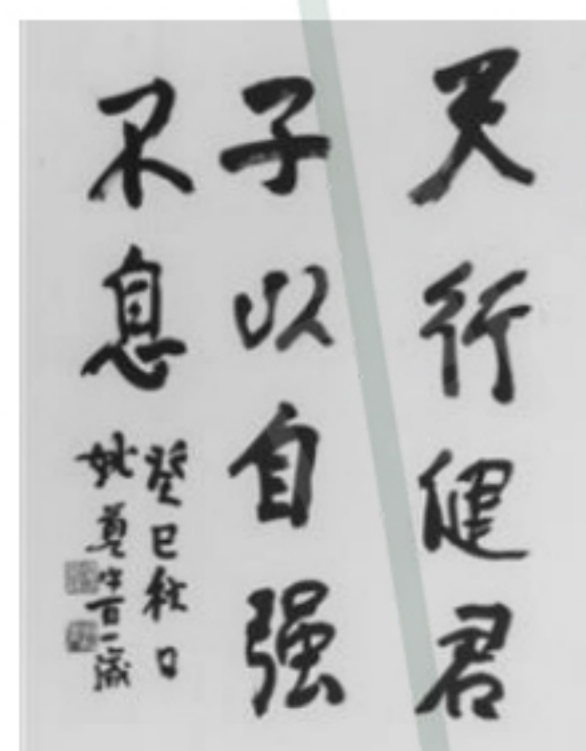 天行健君
子以自强
不息
癸巳秋日
姚奠中百一歲